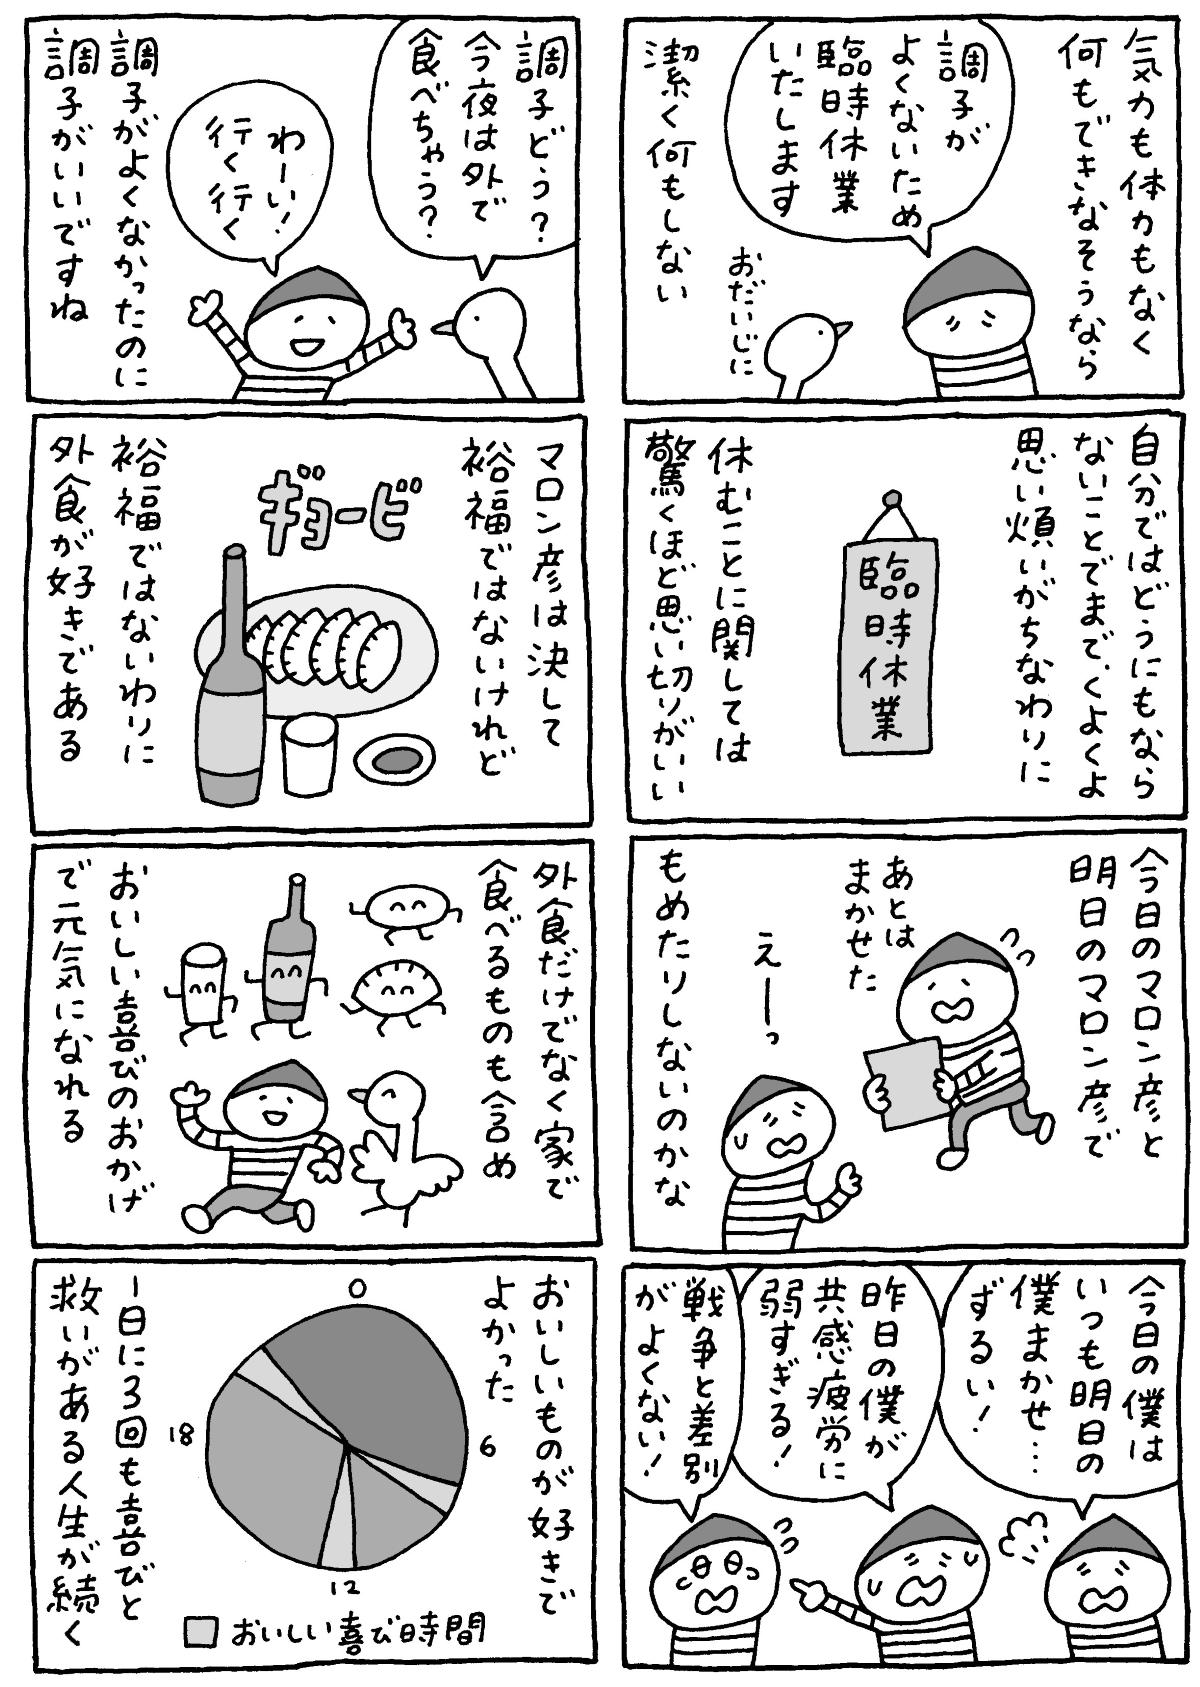 気力も体力もなく
何もできなそうなら
調子が
よくないため
臨時休業
いたします
おだいじに
潔く何もしない
自分ではどうにもなら
ないことでまで、くよくよ
思い煩いがちなわりに
臨時休業
休むことに関しては
驚くほど思い切りがいい
今日のマロン彦と
明日のマロン彦で
あとは
まかせた
えーっ
もめたりしないのかな
今日の僕は
いつも明日の
僕まかせ…
ずるい！
昨日の僕が
共感疲労に
弱すぎる！
戦争と差別
がよくない！
調子どう？
今夜は外で
食べちゃう？
わーい！
行く行く
調子がよくなかったのに
調子がいいですね
マロン彦は決して
裕福ではないけれど
ギョービ
裕福ではないわりに
外食が好きである
外食だけでなく家で
食べるものも含め
おいしい喜びのおかげ
で元気になれる
おいしいものが好きで
よかった
0
6
12
18
おいしい喜び時間
一日に3回も喜びと
救いがある人生が続く